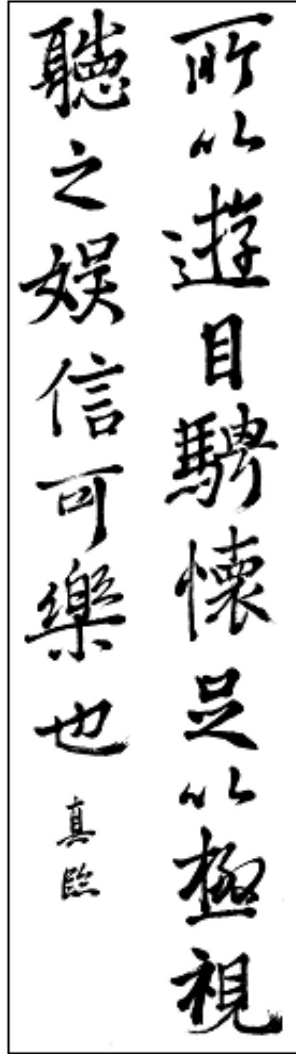 所以遊目騁懐足以極視
聴之娯信可樂也
真臨